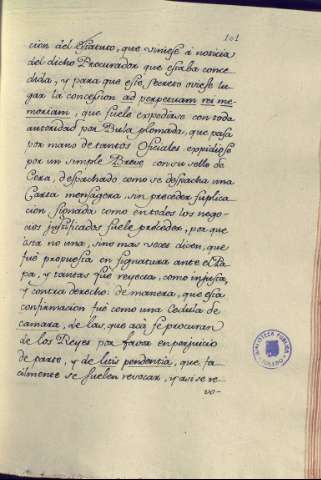 101
cion del Estatuto, que viniese á noticia
del dicho Procurador que estaba conce
dida, y para que este secreto oviese lu
gar la concesion ad perpetuam rei me
moriam, que suele expedirse con toda
autoridad por Bula plomada, que pasa
por mano de tantos Oficiales expidiose
por un simple Breve con su sello de
Cera, despachado como se despacha una
Carta mensagera, sin preceder suplica
cion signada como en todos los nego-
cios justificados suele preceder, por que
aun no una, sino mas voces dicen, que
fué propuesta en signatura ante el Pa
pa, y tantas fué reyecta, como injusta,
y contra derecho: de manera, que esta
confirmacion fué como una Cedula de
camara, de las que acá se procuran
de los Reyes por favor en perjuicio
de parte, y de litis pendentia, que fa-
cilmente se suelen revocar, y asi se re
vo-
BIBLIOTECA PUBLICA
TOLEDO